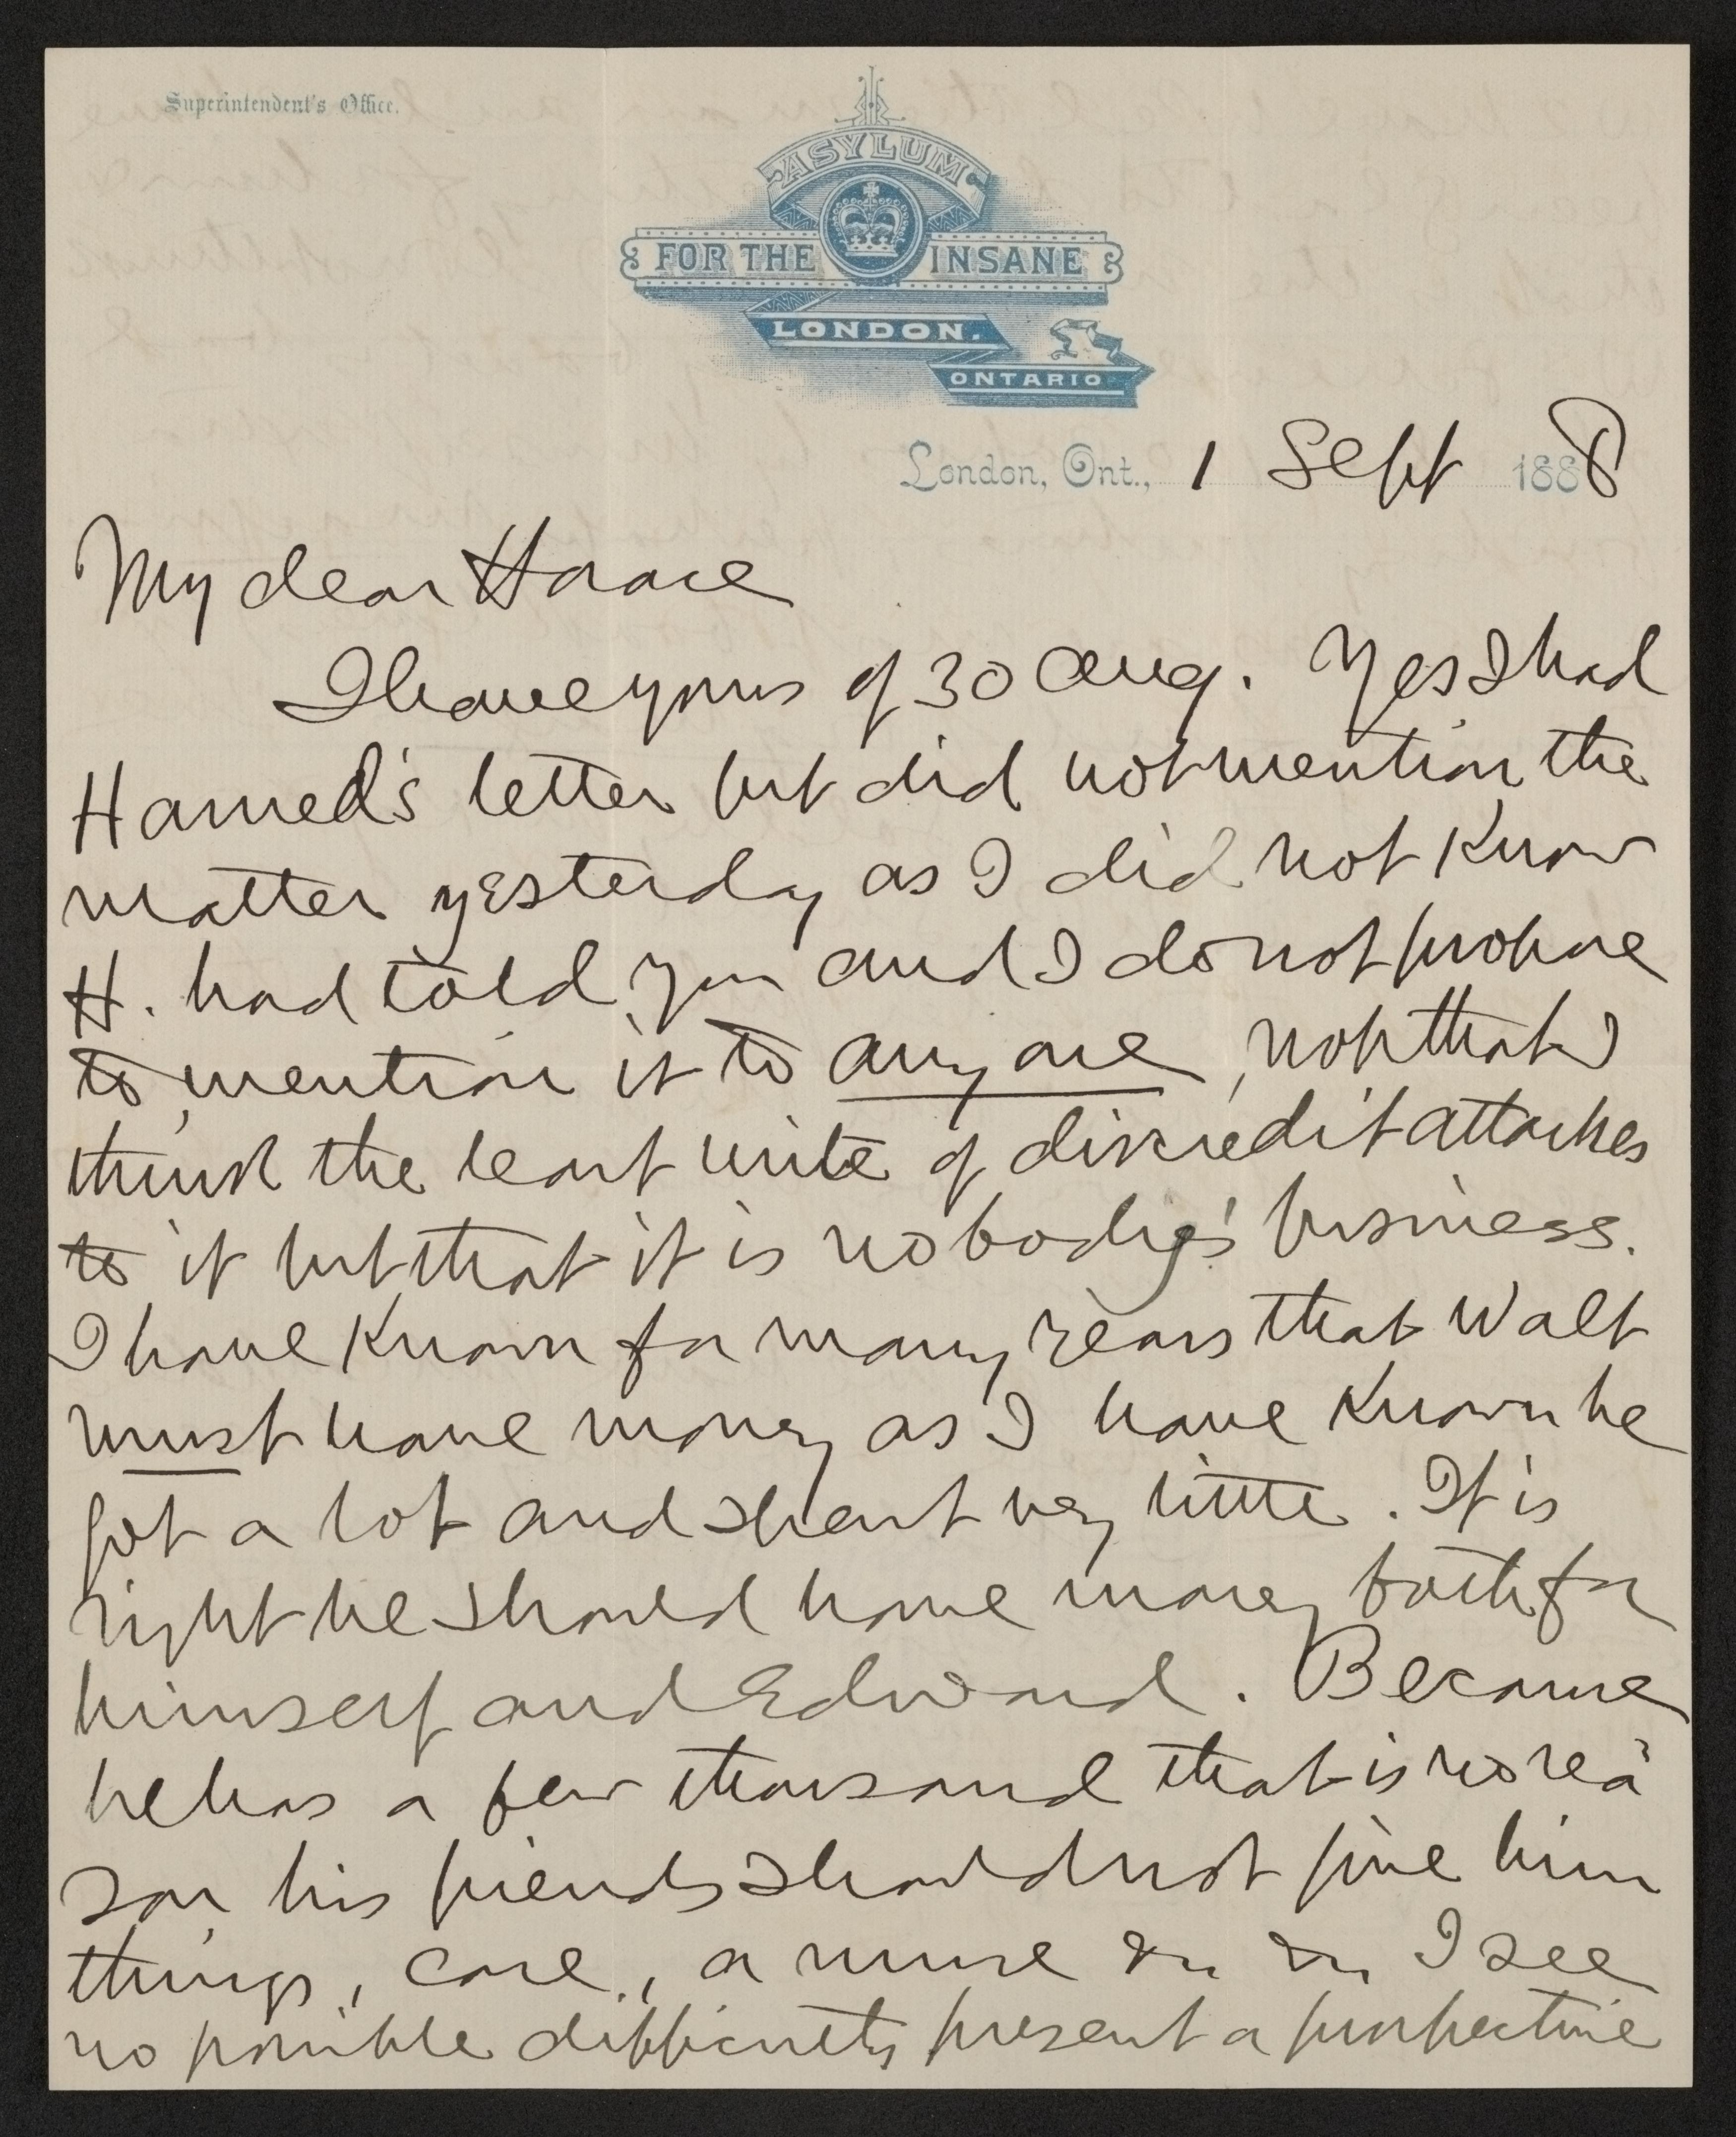 Superintendent's Office.
ASYLUM
FOR THE INSANE
LONDON.
ONTARIO
London, Ont., 1 Sept 1888
My dear Horace
I have yours of 30 Aug. Yes I had
Harned's letter but did not mention the
matter yesterday as I did not know
H. had told you and I do not propose
to mention it to any one, not that I
think the least mite of discredit attaches
to it but that it is nobody's business.
I have known for many years that Walt
must have money as I have known he
got a lot and spent very little. It is
right he should have money both for
himself and Edward. Because
he has a few thousand that is no rea
son his friends should not give him
things, care, a nurse &c &c I see
no possible difficulty present or prospective